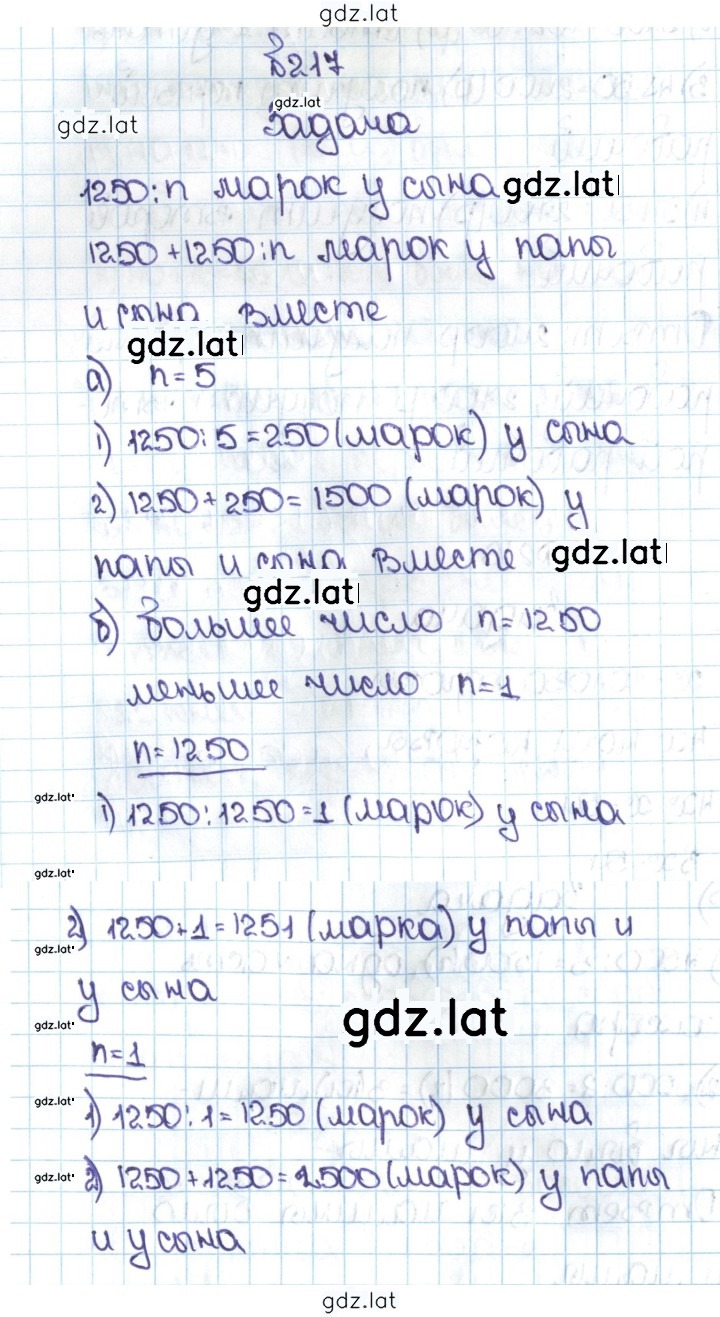 gdz.lat
№217
gdz.lat
gdz.lat
Задача
1250:n марок у сына gdz.lat
1250+1250:n марок у папы
и сына вместе
gdz.lat
а) n=5
1) 1250:5=250(марок) у сына
2) 1250+250=1500 (марок) у
папы и сына вместе gdz.lat
gdz.lat
б) большее число n=1250
меньшее число n=1
n=1250
gdz.lat
1) 1250:1250=1 (марок) у сына
gdz.lat
2) 1250+1=1251 (марка) у папы и
gdz.lat
у сына
gdz.lat
gdz.lat
n=1
gdz.lat
1) 1250:1=1250 (марок) у сына
gdz.lat
2) 1250+1250=2500 (марок) у папы
и у сына
gdz.lat